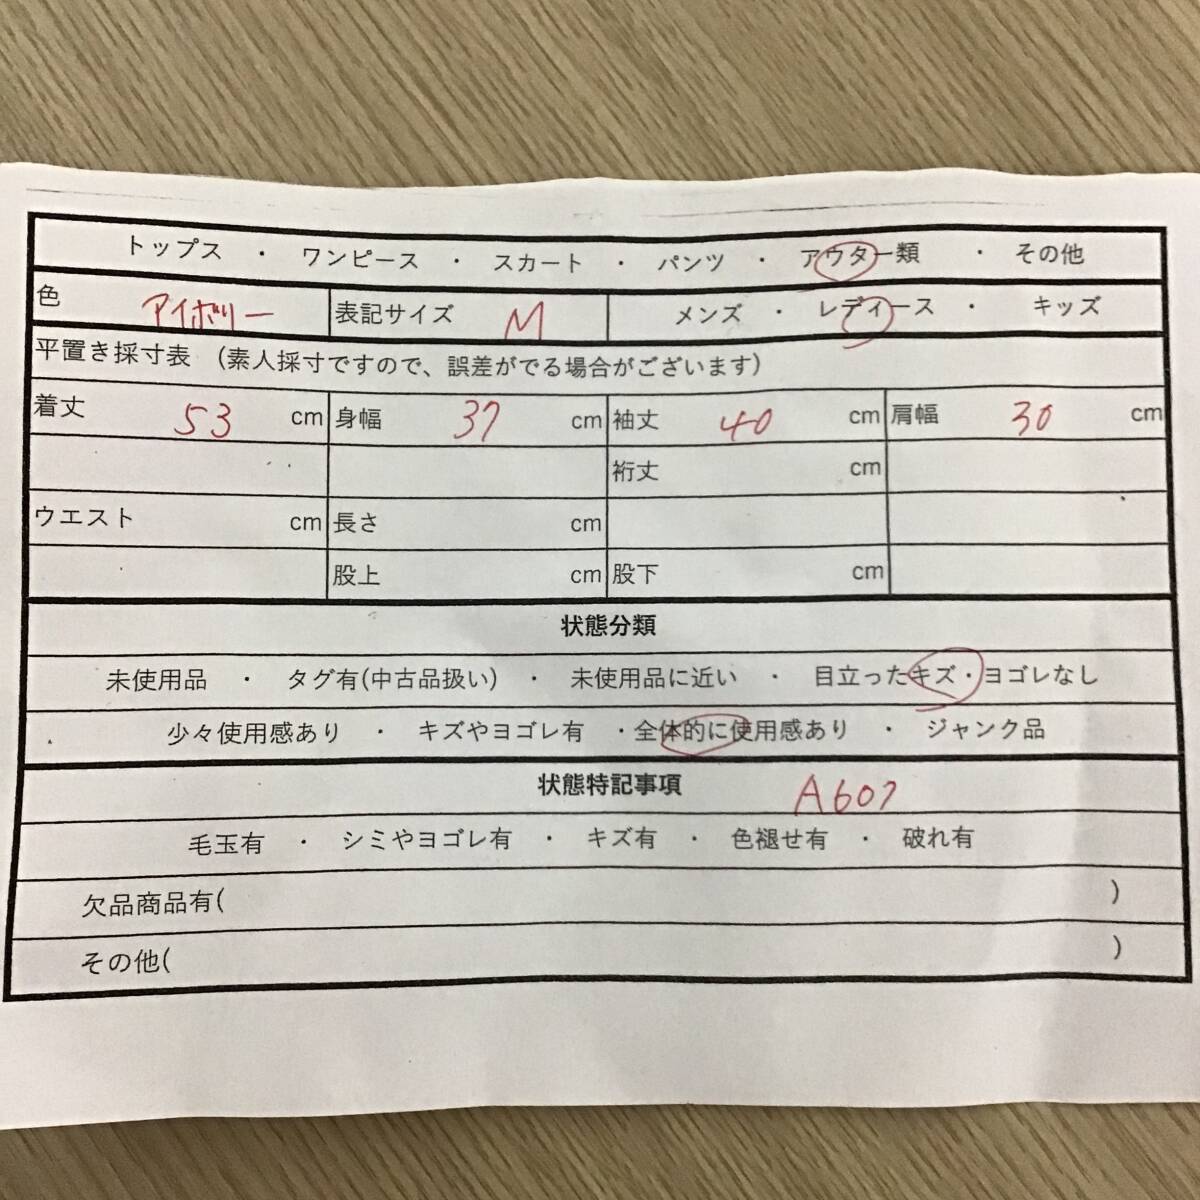 トップス ・ ワンピース ・ スカート ・ パンツ ・ アウター類 ・ その他
色 アイボリー 表記サイズ M メンズ ・ レディース ・ キッズ
平置き採寸表 (素人採寸ですので、誤差がでる場合がございます)
着丈 53 cm 身幅 37 cm 袖丈 40 cm 肩幅 30 cm
裄丈 cm
ウエスト cm 長さ cm
股上 cm 股下 cm
状態分類
未使用品 ・ タグ有(中古品扱い) ・ 未使用品に近い ・ 目立ったキズ・ヨゴレなし
少々使用感あり ・ キズやヨゴレ有 ・全体的に使用感あり ・ ジャンク品
状態特記事項 A607
毛玉有 ・ シミやヨゴレ有 ・ キズ有 ・ 色褪せ有 ・ 破れ有
欠品商品有( )
その他( )